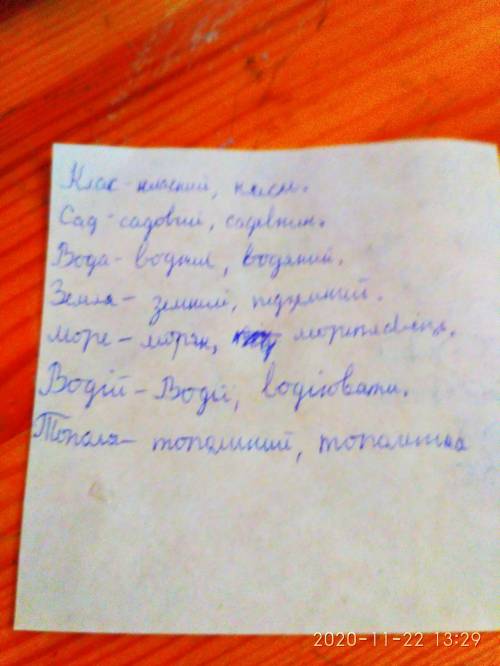 Клас - класний, класи.
Сад - садовий, садівник.
Вода - водний, водяний.
Земля - земний, підземний.
Море - моряк, мореплавець.
Водій - Водії, водіювати.
Тополя - тополиний, тополинка
2020-11-22 13:29